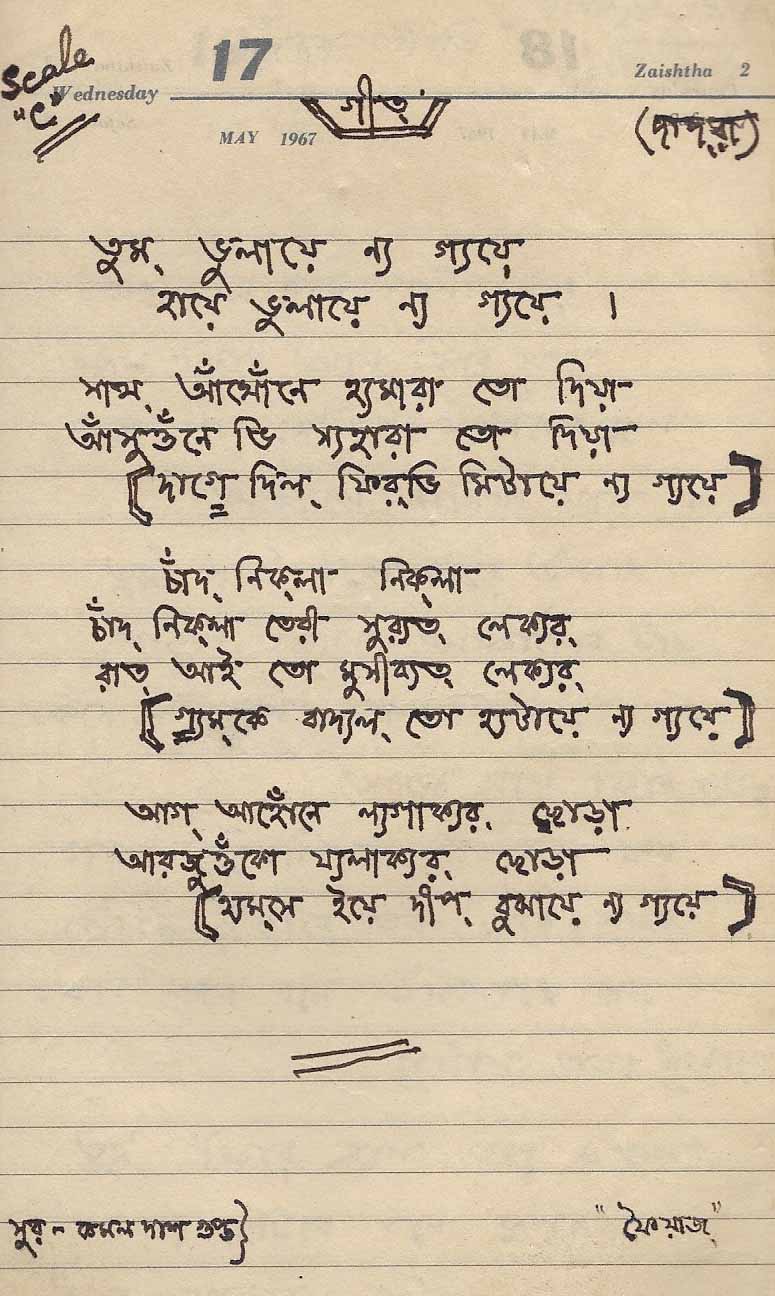 Scale "C"
17
Wednesday
Zaishtha 2
MAY 1967
গীত্
(দাদ্‌রা)
তুম্ ভুলায়ে ন্য গ্যয়ে
হায়ে ভুলায়ে ন্য গ্যয়ে ।
আঁখোঁনে হ্যমারা তো দিয়া
আঁসুওঁনে ভি স্যহারা তো দিয়া
[দাগে দিল্ ফির্‌ভি মিটায়ে ন্য গ্যয়ে]
চাঁদ্ নিক্‌লা নিক্‌লা
চাঁদ্ নিক্‌লা তেরী সুর‍্যত্ লেক্যর্
রাত্ আই তো মুসীব্যত্ লেক্যর্
[গ্যম্‌কে বাদ্যল্ তো হ্যটায়ে ন্য গ্যয়ে]
আগ্ আহোঁনে ল্যগাক্যর্ ছোড়া
আরজুওঁকো য্যলাক্যর্ ছোড়া
[হ্যম্‌সে ইয়ে দীপ্ বুঝায়ে ন্য গ্যয়ে]
সুর - কমল দাশ গুপ্ত}
"ফৈয়াজ্"